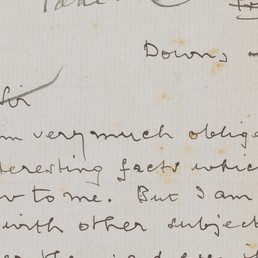 Down,
Sir
am very much oblige
teresting facts whic
w to me. But I am
with other subject